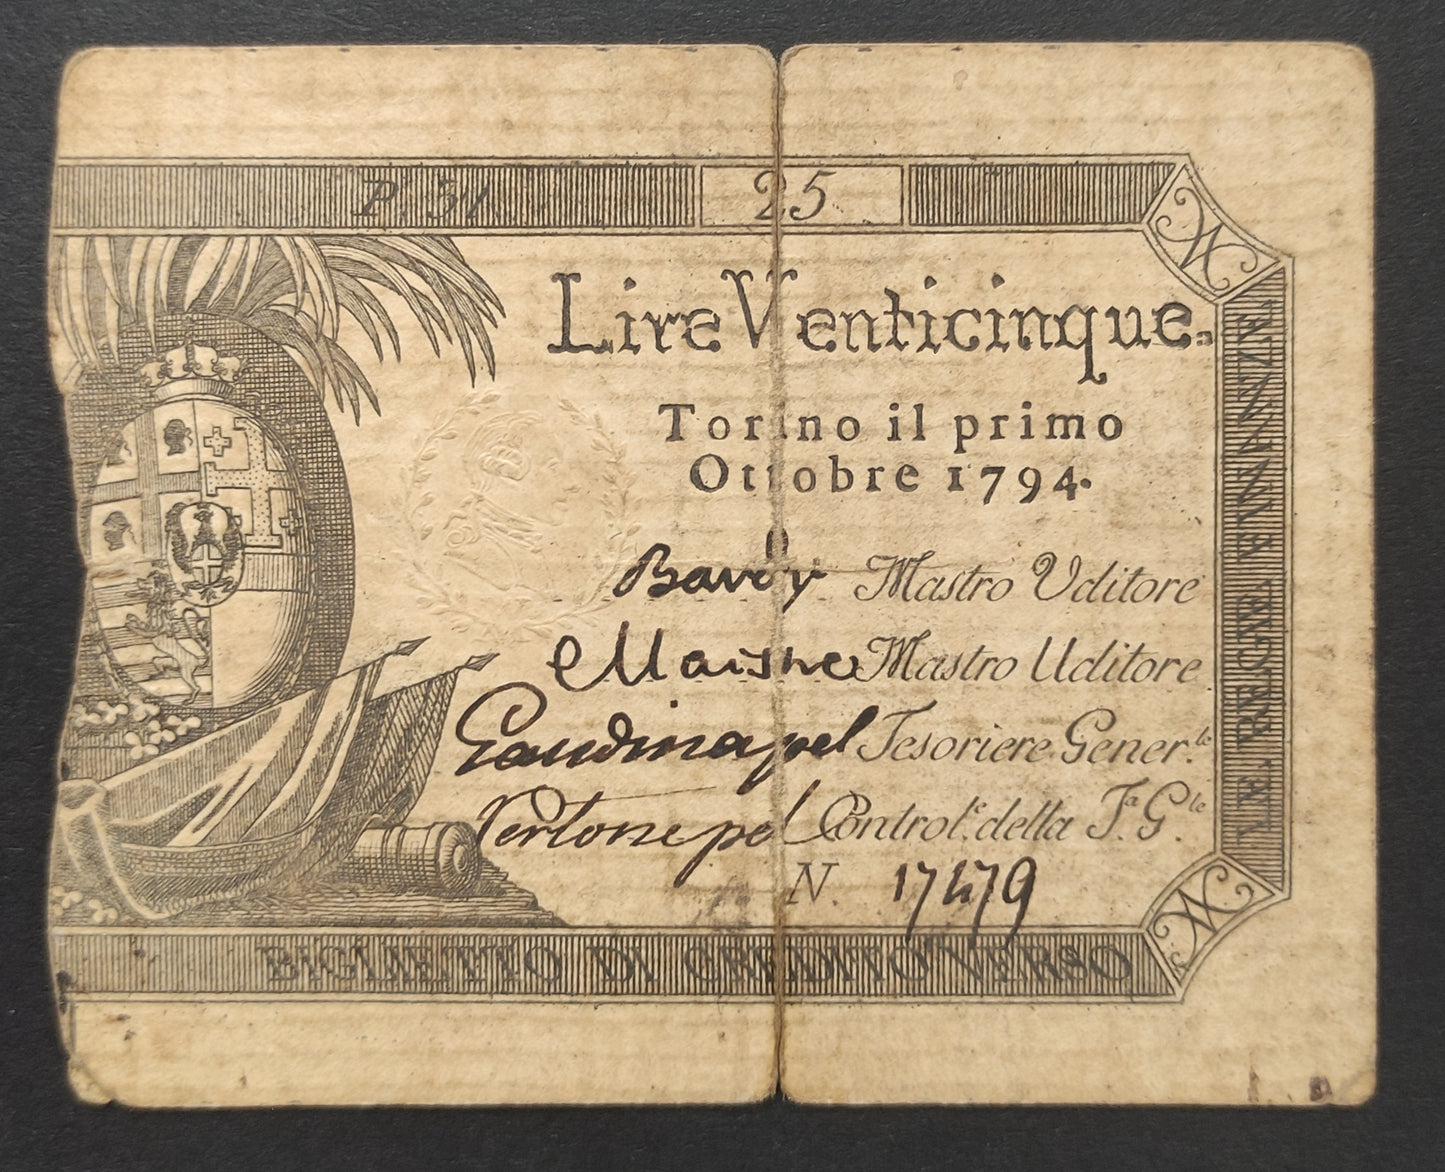 P. 31 25
Lire Venticinque.
Torino il primo
Ottobre 1794.
Mastro Uditore
Maistre Mastro Uditore
Gaudina pel Tesoriere Gener.le
Tertone pel Control.e della T.a G.le
N. 17479
BIGLIETTO DI CREDITO VERSO
LE REGIE FINANZE